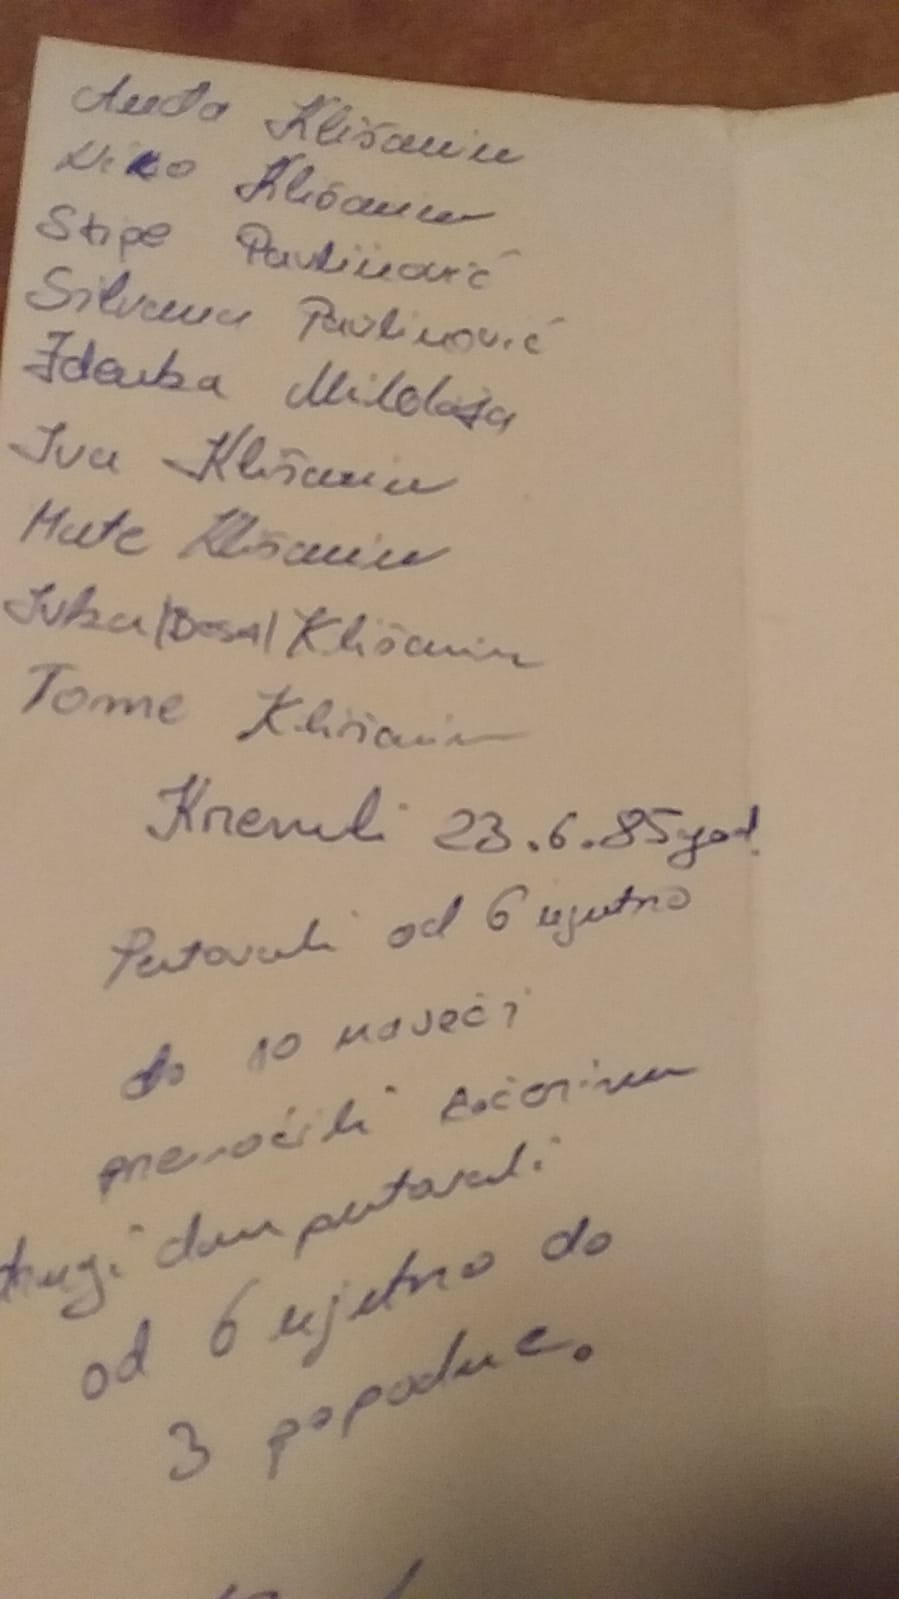 Anđa Klišanin
Niko Klišanin
Stipe Pavlinović
Silvana Pavlinović
Zdenka Miloloža
Iva Klišanin
Mate Klišanin
Ivka /Dosa/ Klišanin
Tome Klišanin
Krenuli 23.6.85 god.
Putovali od 6 ujutro
do 10 naveči
prenoćili
drugi dan putovali
od 6 ujutro do
3 popodne.